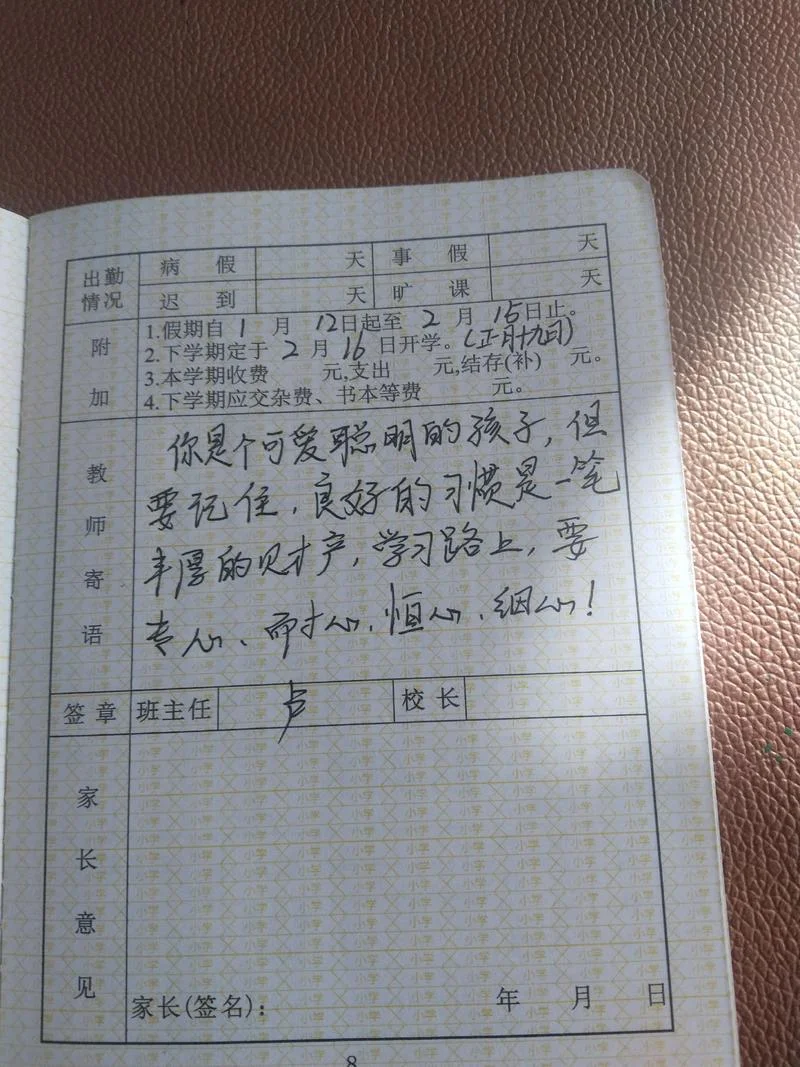 出勤情况 病假 天 事假 天
迟到 天 旷课 天
附加
1.假期自 1 月 12日起至 2 月 15日止。
2.下学期定于 2 月 16 日开学。(正月十九日)
3.本学期收费 元,支出 元,结存(补) 元。
4.下学期应交杂费、书本等费 元。
教师寄语
你是个可爱聪明的孩子,但
要记住,良好的习惯是一笔
丰厚的财产,学习路上,要
专心、耐心、恒心、细心!
签章 班主任 卢 校长
家长意见
家长(签名): 年 月 日
8